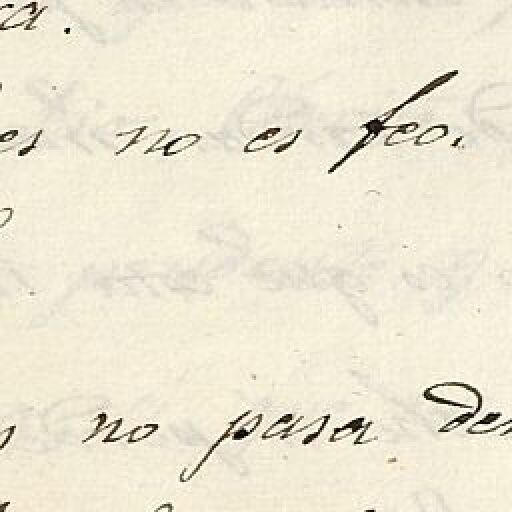 a.
es no es feo.
no pasa de